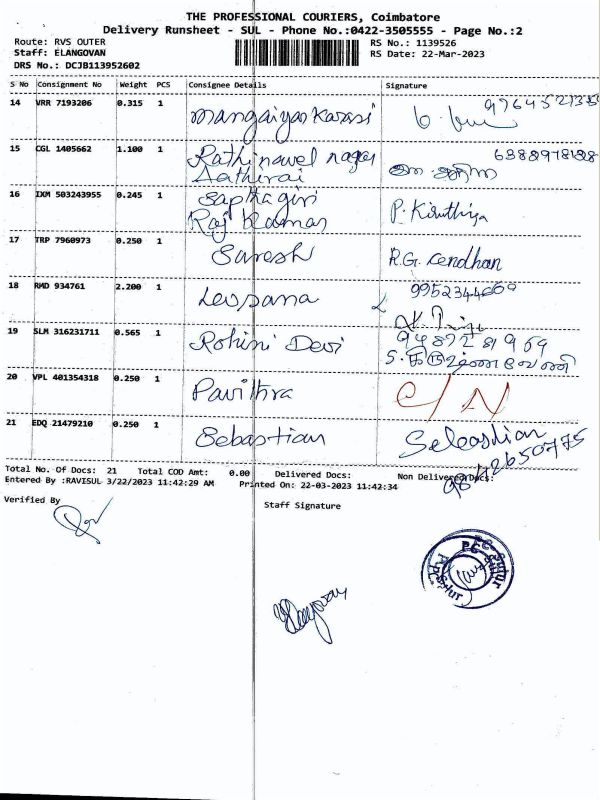 THE PROFESSIONAL COURIERS, Coimbatore
Delivery Runsheet - SUL - Phone No.:0422-3505555 - Page No.:2
Route: RVS OUTER
Staff: ELANGOVAN
DRS No.: DCJB113952602
RS No.: 1139526
RS Date: 22-Mar-2023
S No Consignment No Weight PCS Consignee Details Signature
14 VRR 7193206 0.315 1 Mangaiyarkarasi
15 CGL 1405662 1.100 1 Rathinavel nagar
Aathirai
16 IXM 503243955 0.245 1 Sapthagiri
Raj Kumar P. Kiruthiya
17 TRP 7960973 0.250 1 Suresh R.G. Cendhan
18 RMD 934761 2.200 1
19 SLM 316231711 0.565 1 Rohini Devi
9487281969
S. கருஷ்ணவேணி
20 VPL 401354318 0.250 1 Pavithra C/N
21 EDQ 21479210 0.250 1 Sebastian Sebastian
9842650775
Total No. Of Docs: 21 Total COD Amt: 0.00 Delivered Docs: Non Delivered Docs:
Entered By :RAVISUL 3/22/2023 11:42:29 AM Printed On: 22-03-2023 11:42:34
Verified By
Staff Signature
Elangovan